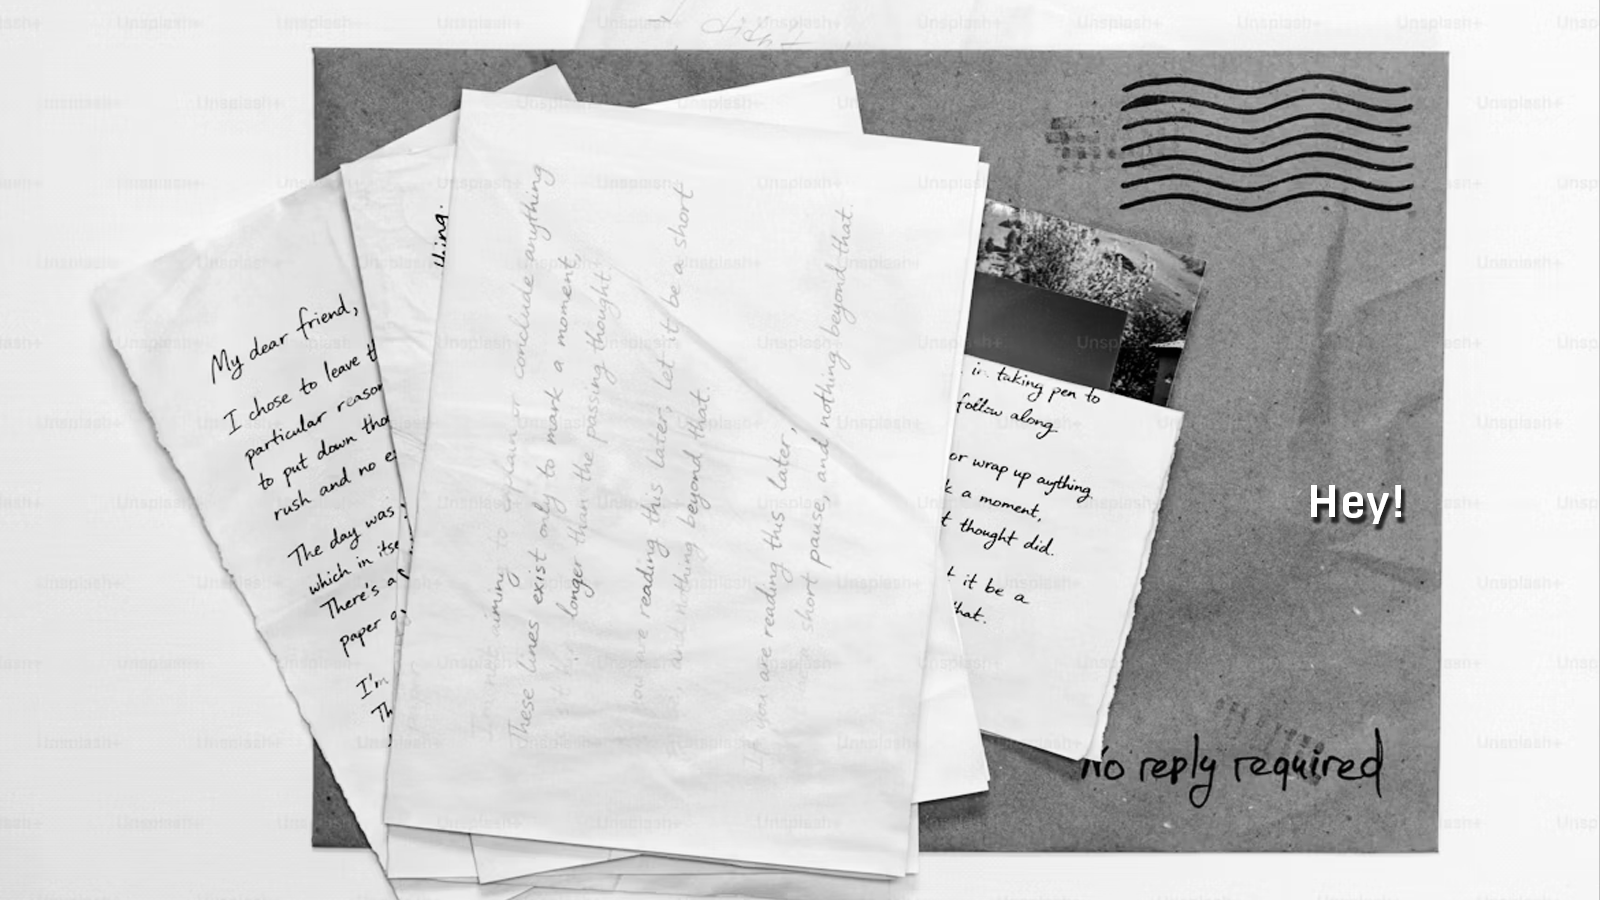 didn't
My dear friend,
I chose to leave
particular reason
to put down
rush and no
The day was
which in itse
There's a
paper
I'm
Th
I'm not aiming to explain or conclude anything
These lines exist only to mark a moment,
longer than the passing thought.
you are reading this later, let it be a short
and nothing beyond that.
If you are reading this later,
be a short pause, and nothing beyond that.
in taking pen to
follow along
or wrap up aything
a moment,
thought did.
it be a
that.
No reply required
Hey!